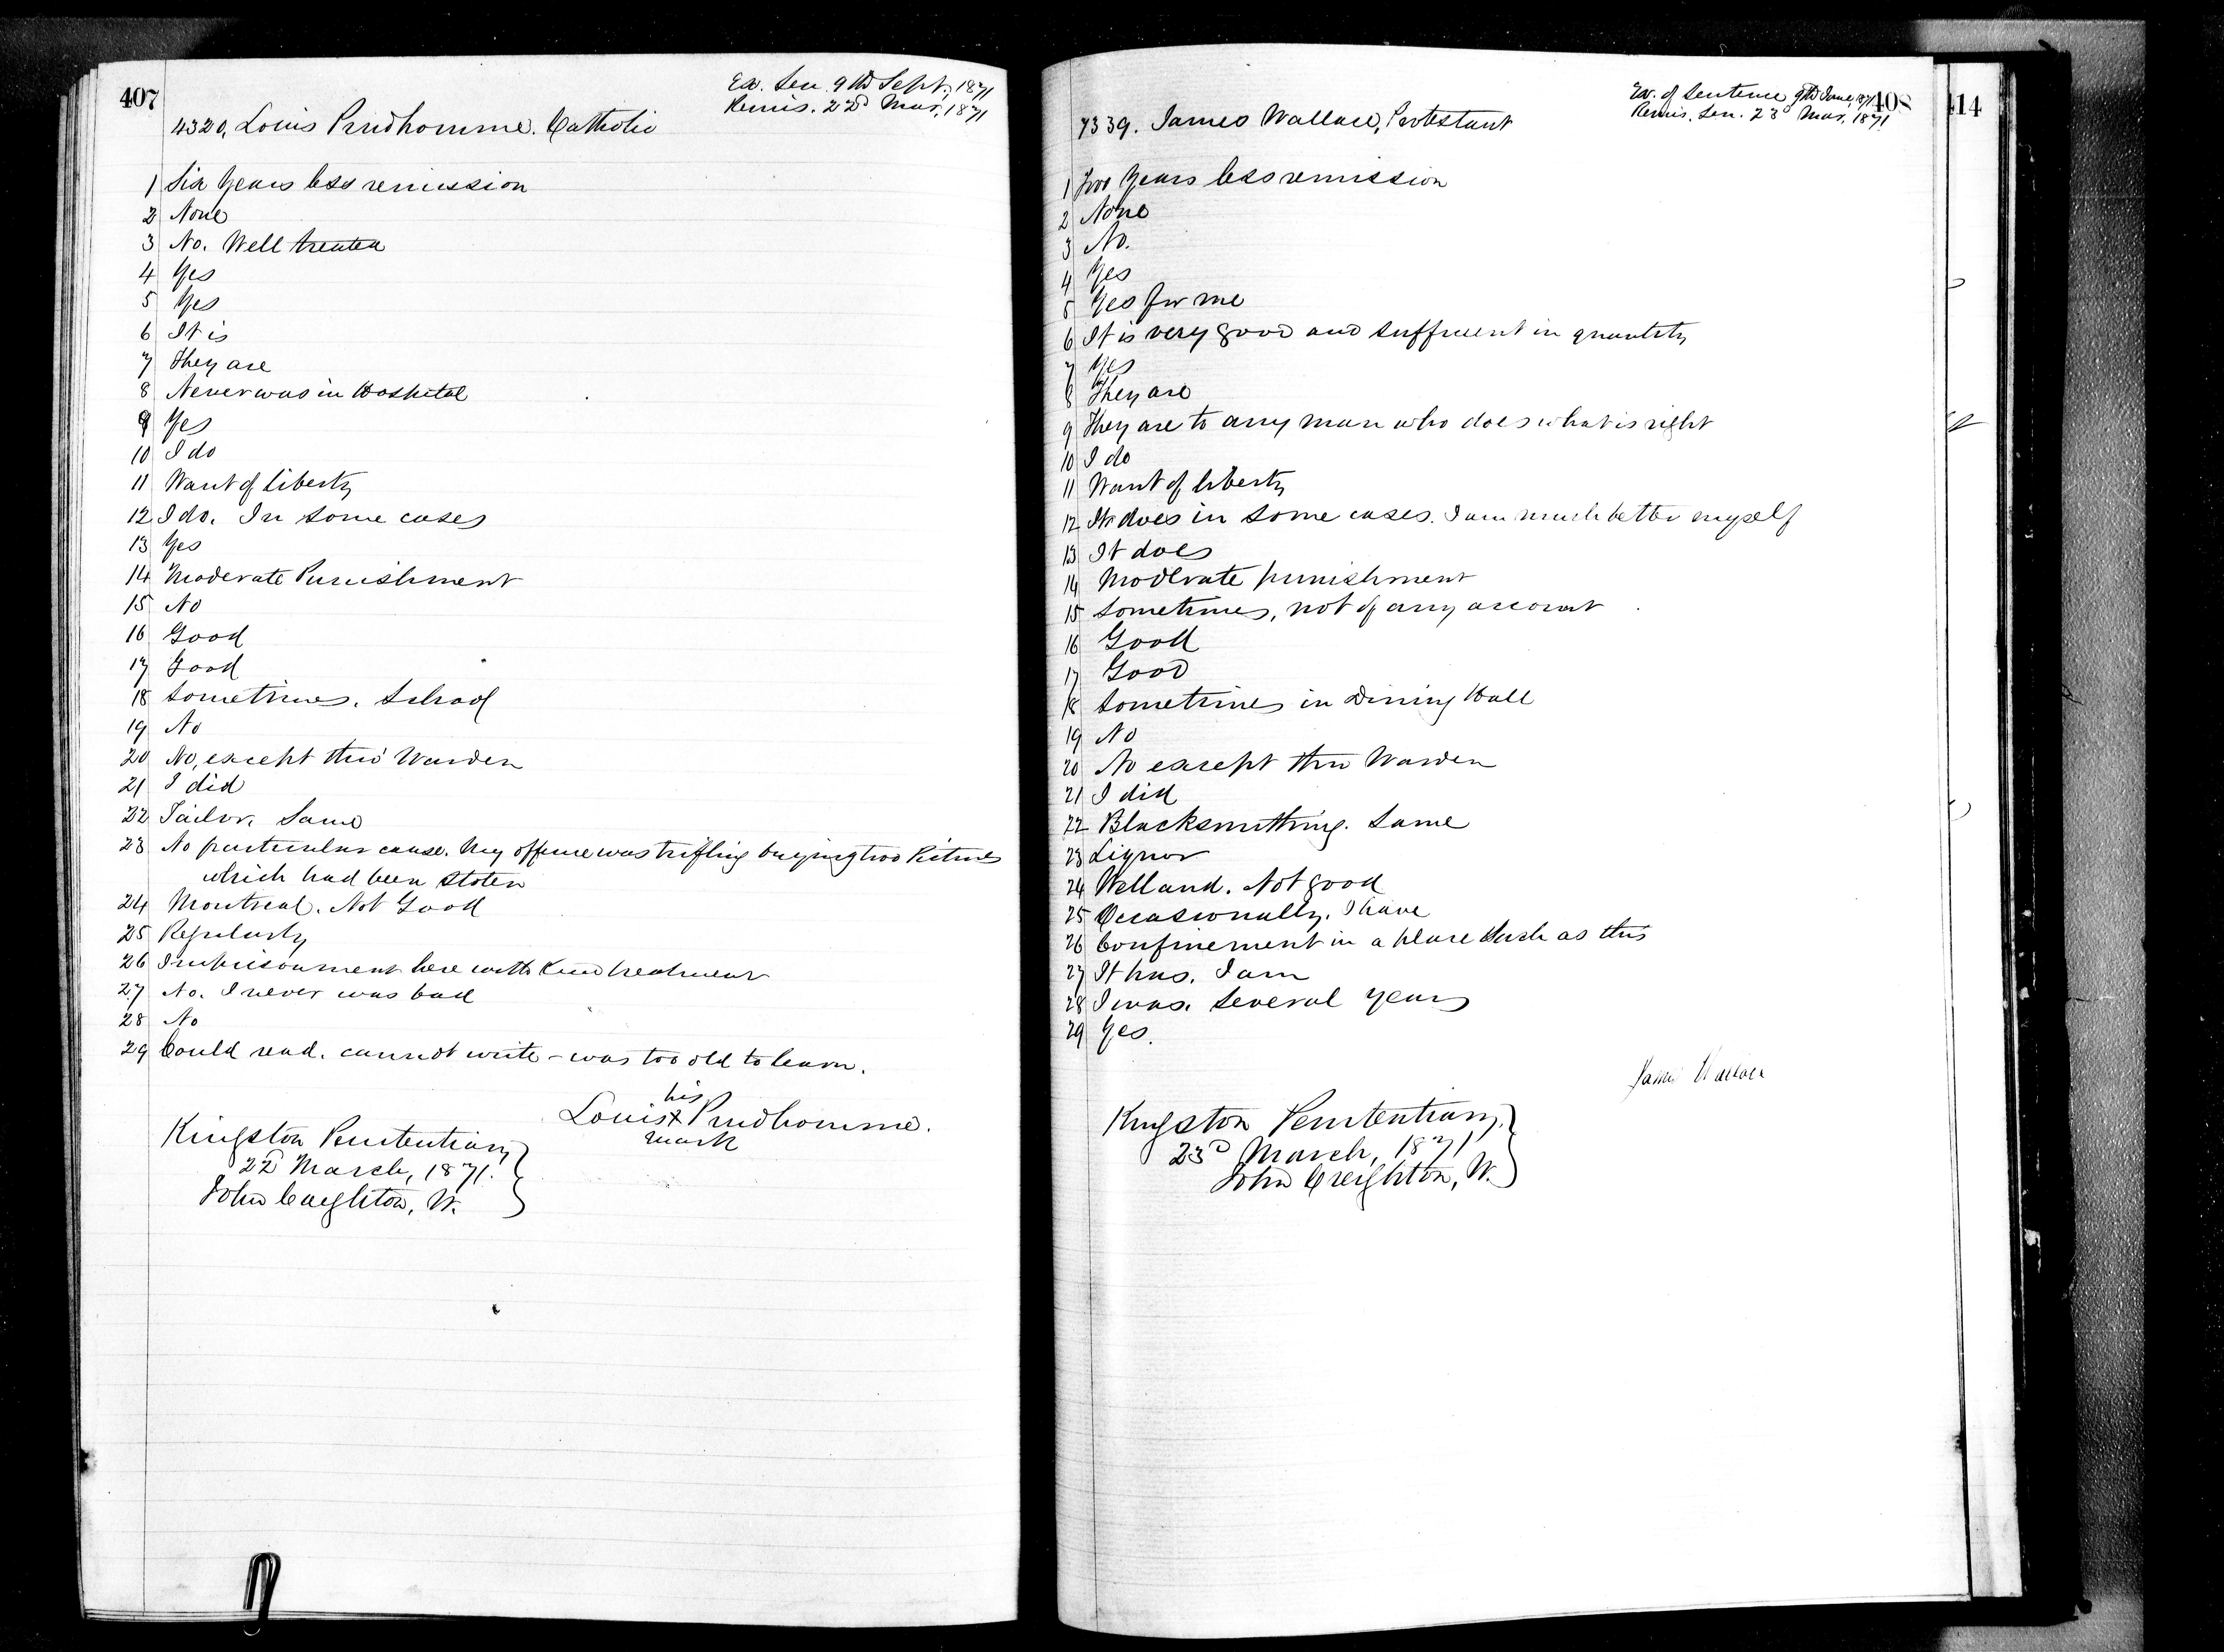 407
Ex. Sen. 9th Sept, 1871
Remis. 22d Mar, 1871
4320, Louis Prudhomme. Catholic
1 Six Years less remission
2 None
3 No. Well treated
4 Yes
5 Yes
6 It is
7 They are
8 Never was in Hospital
9 Yes
10 I do
11 Want of liberty
12 I do. In some cases
13 Yes
14 Moderate Punishment
15 No
16 Good
17 Good
18 Sometimes. School
19 No
20 No, except thro' Warden
21 I did
22 Tailor. Same
23 No particular cause. My offence was trifling buying two Pictures
which had been stolen
24 Montreal. Not Good
25 Regularly
26 Imprisonment here with kind treatment
27 No. I never was bad
28 No
29 Could read. cannot write - was too old to learn.
his
Louis X Prudhomme.
mark
Kingston Penitentiary
22d March, 1871.
John Creighton, W.
408
Ex. of Sentence 9th June, 1871
Remis. Sen. 23d Mar. 1871
7339. James Wallace, Protestant
1 Two Years less remission
2 None
3 No.
4 Yes
5 Yes for me
6 It is very good and sufficient in quantity
7 Yes
8 They are
9 They are to any man who does what is right
10 I do
11 Want of liberty
12 It does in some cases. I am much better myself
13 It does
14 Moderate punishment
15 Sometimes, not of any account
16 Good
17 Good
18 Sometimes in Dining Hall
19 No
20 No except thro Warden
21 I did
22 Blacksmithing. Same
23 Liquor
24 Welland. Not good
25 Occasionally. I have
26 Confinement in a place such as this
27 It has. I am
28 I was. Several years
29 Yes.
James Wallace
Kingston Penitentiary,
23d March, 1871
John Creighton, W.
414